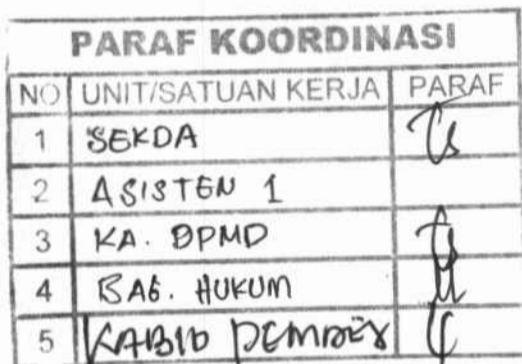 PARAF KOORDINASI
NO UNIT/SATUAN KERJA PARAF
1 SEKDA
2 ASISTEN 1
3 KA. DPMD
4 BAG. HUKUM
5 KABID PEMDES